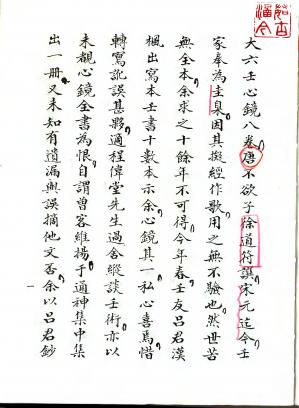 大六壬心鏡八卷唐不欲子徐道符譔宋元迄今壬
家奉為圭臬因其擬經作歌用之無不驗也然世苦
無全本余求之十餘年不可得今年春壬友呂君漢
楓出寫本壬書十數本示余心鏡其一私心喜焉惜
轉寫訛誤甚夥適程偉堂先生過舍縱談壬術亦以
未覩心鏡全書為恨自謂曾客維揚于通神集中集
出一冊又未知有遺漏與誤摘他文否余以呂君鈔